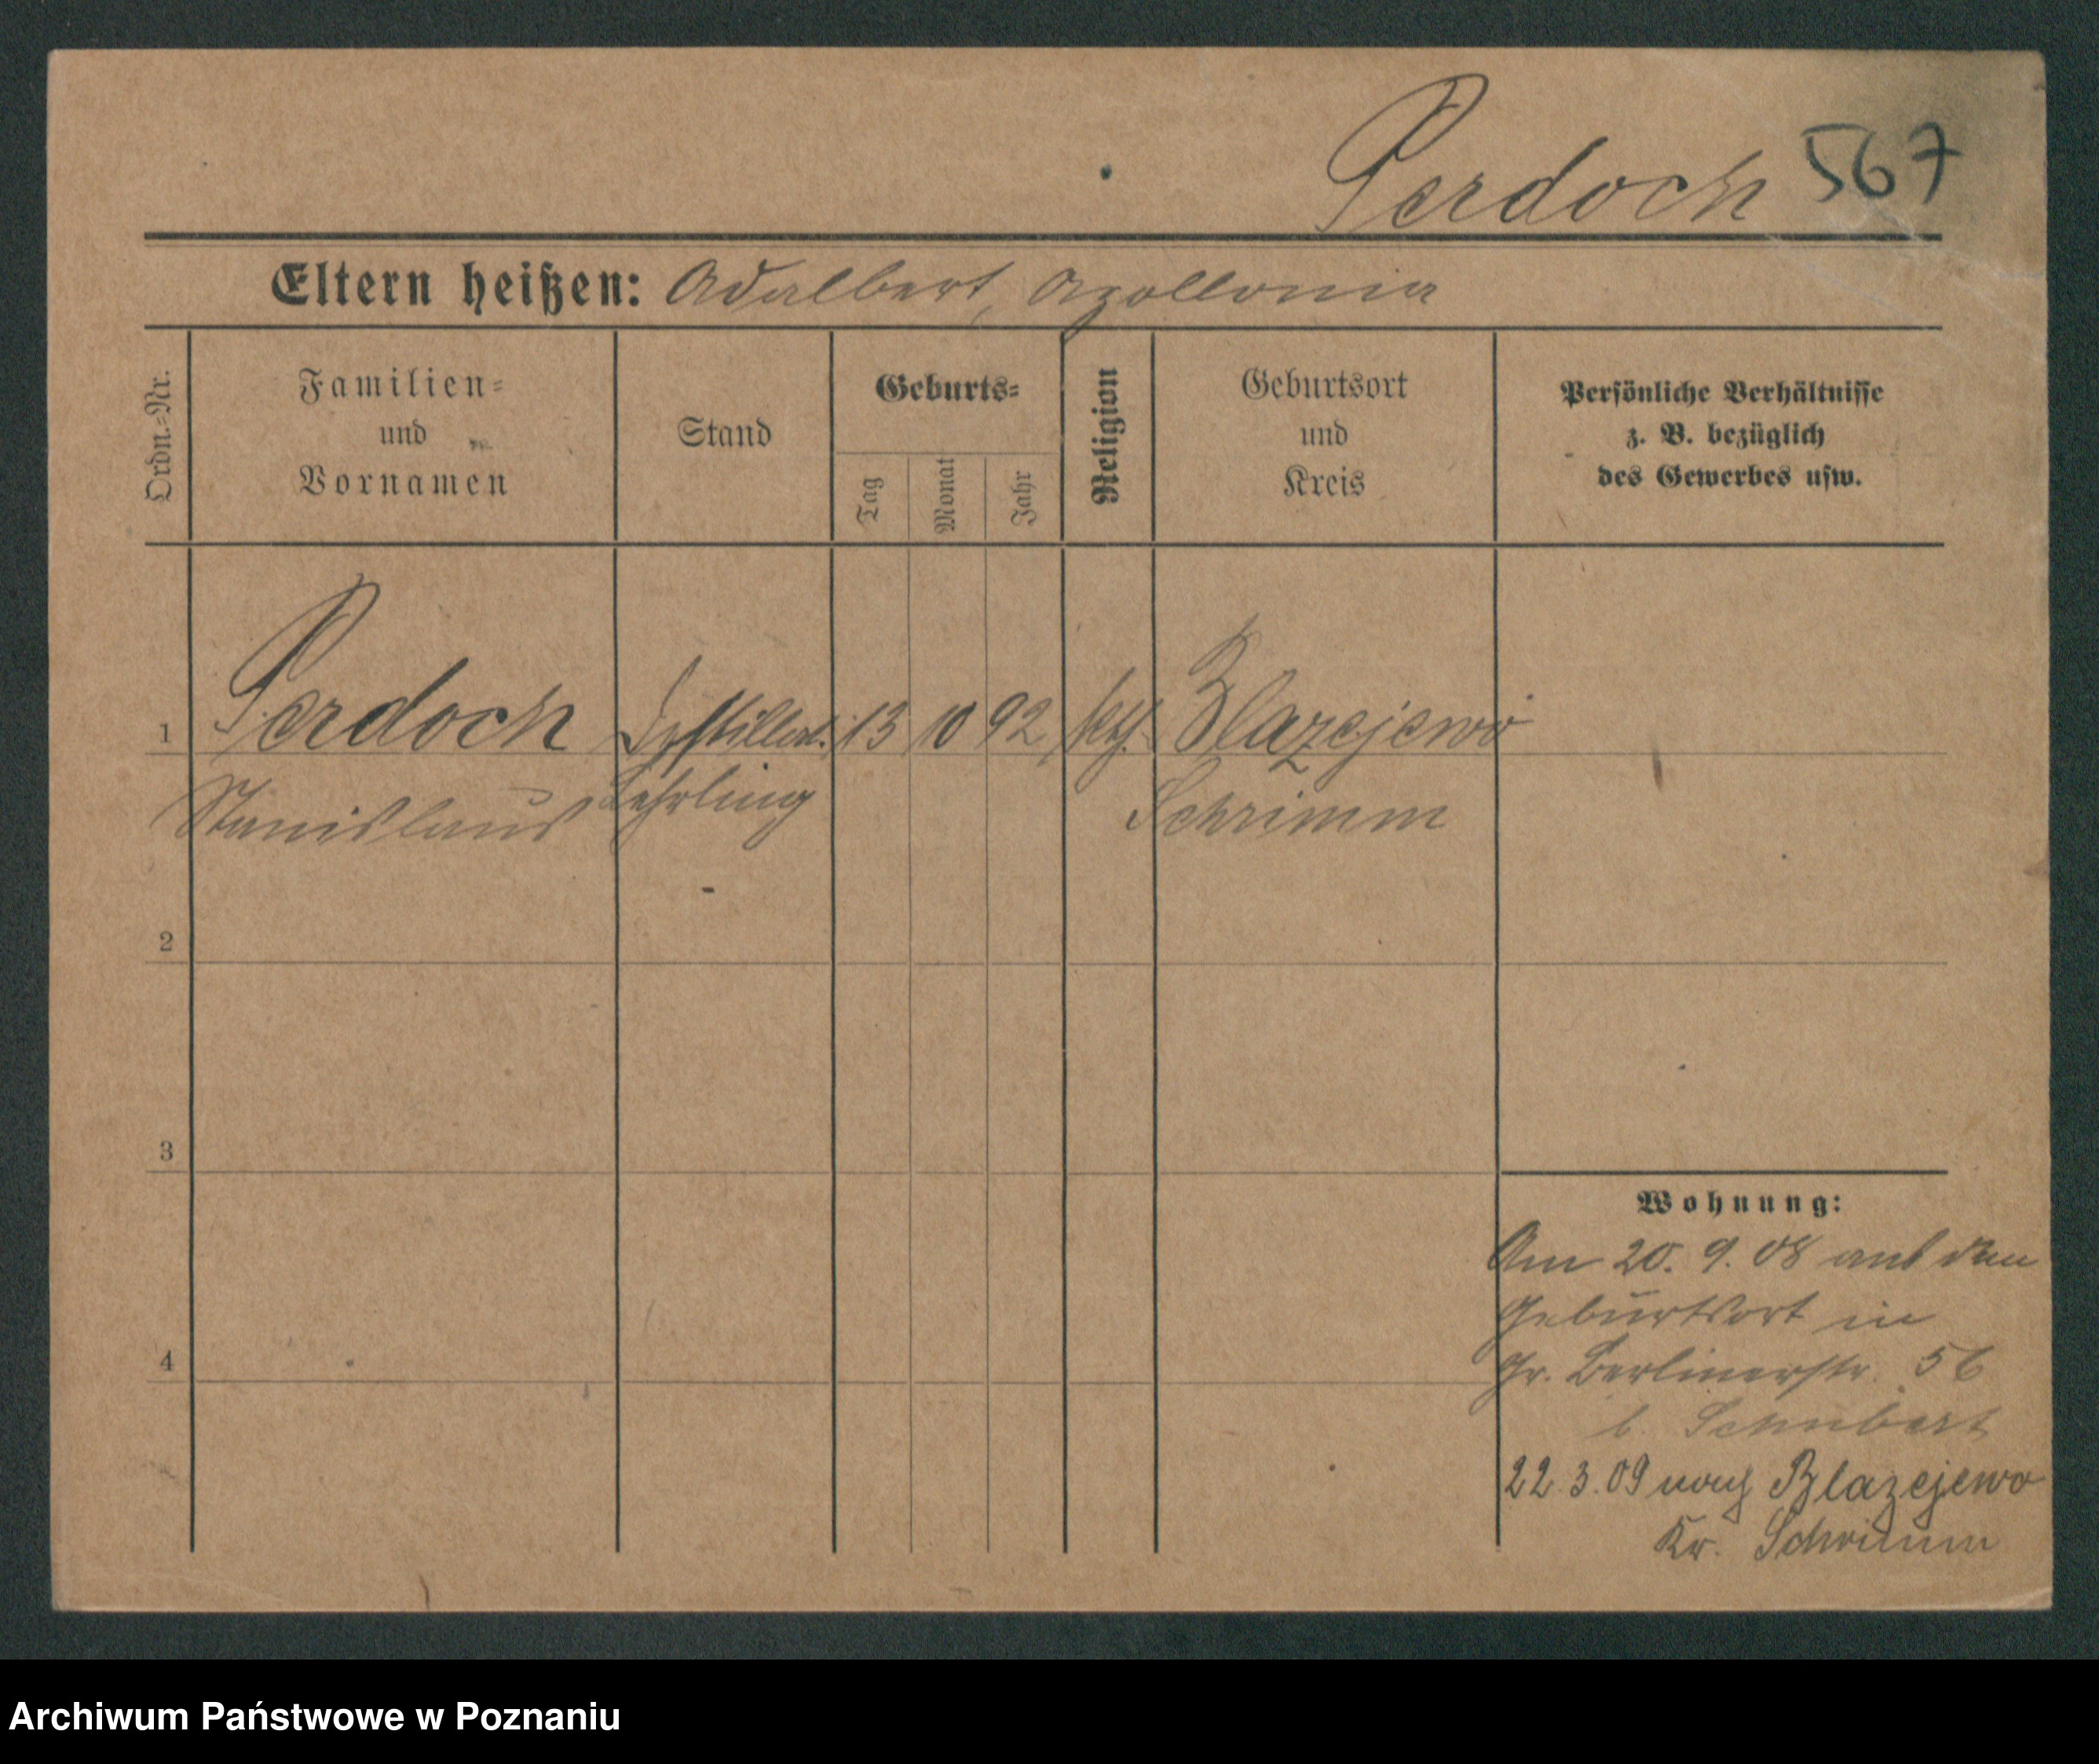 Perdoch 567
Eltern heißen: Adalbert, Apollonia
Ordn.-Nr.
Familien-
und
Vornamen
Stand
Geburts-
Tag
Monat
Jahr
Religion
Geburtsort
und
Kreis
Persönliche Verhältnisse
z. B. bezüglich
des Gewerbes usw.
1 Perdoch Destillat. 13 10 92 kth. Blazejewo
Stanislaus Lehrling Schrimm
2
3
4
Wohnung:
Am 20. 9. 08 aus dem
Geburtsort in
Gr. Berlinerstr. 56
b. Schubert
22.3.09 nach Blazejewo
Kr. Schrimm
Archiwum Państwowe w Poznaniu